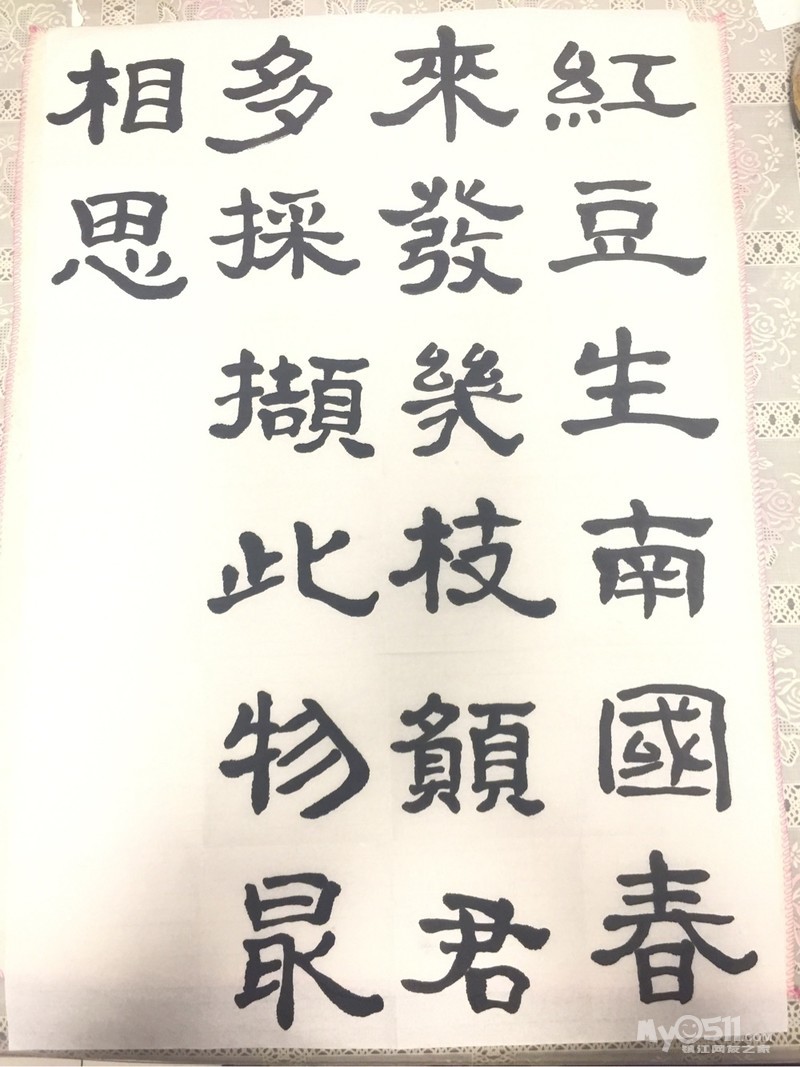 紅豆生南國春
來發幾枝願君
多採擷此物最
相思
My0511.com
镇江网友之家